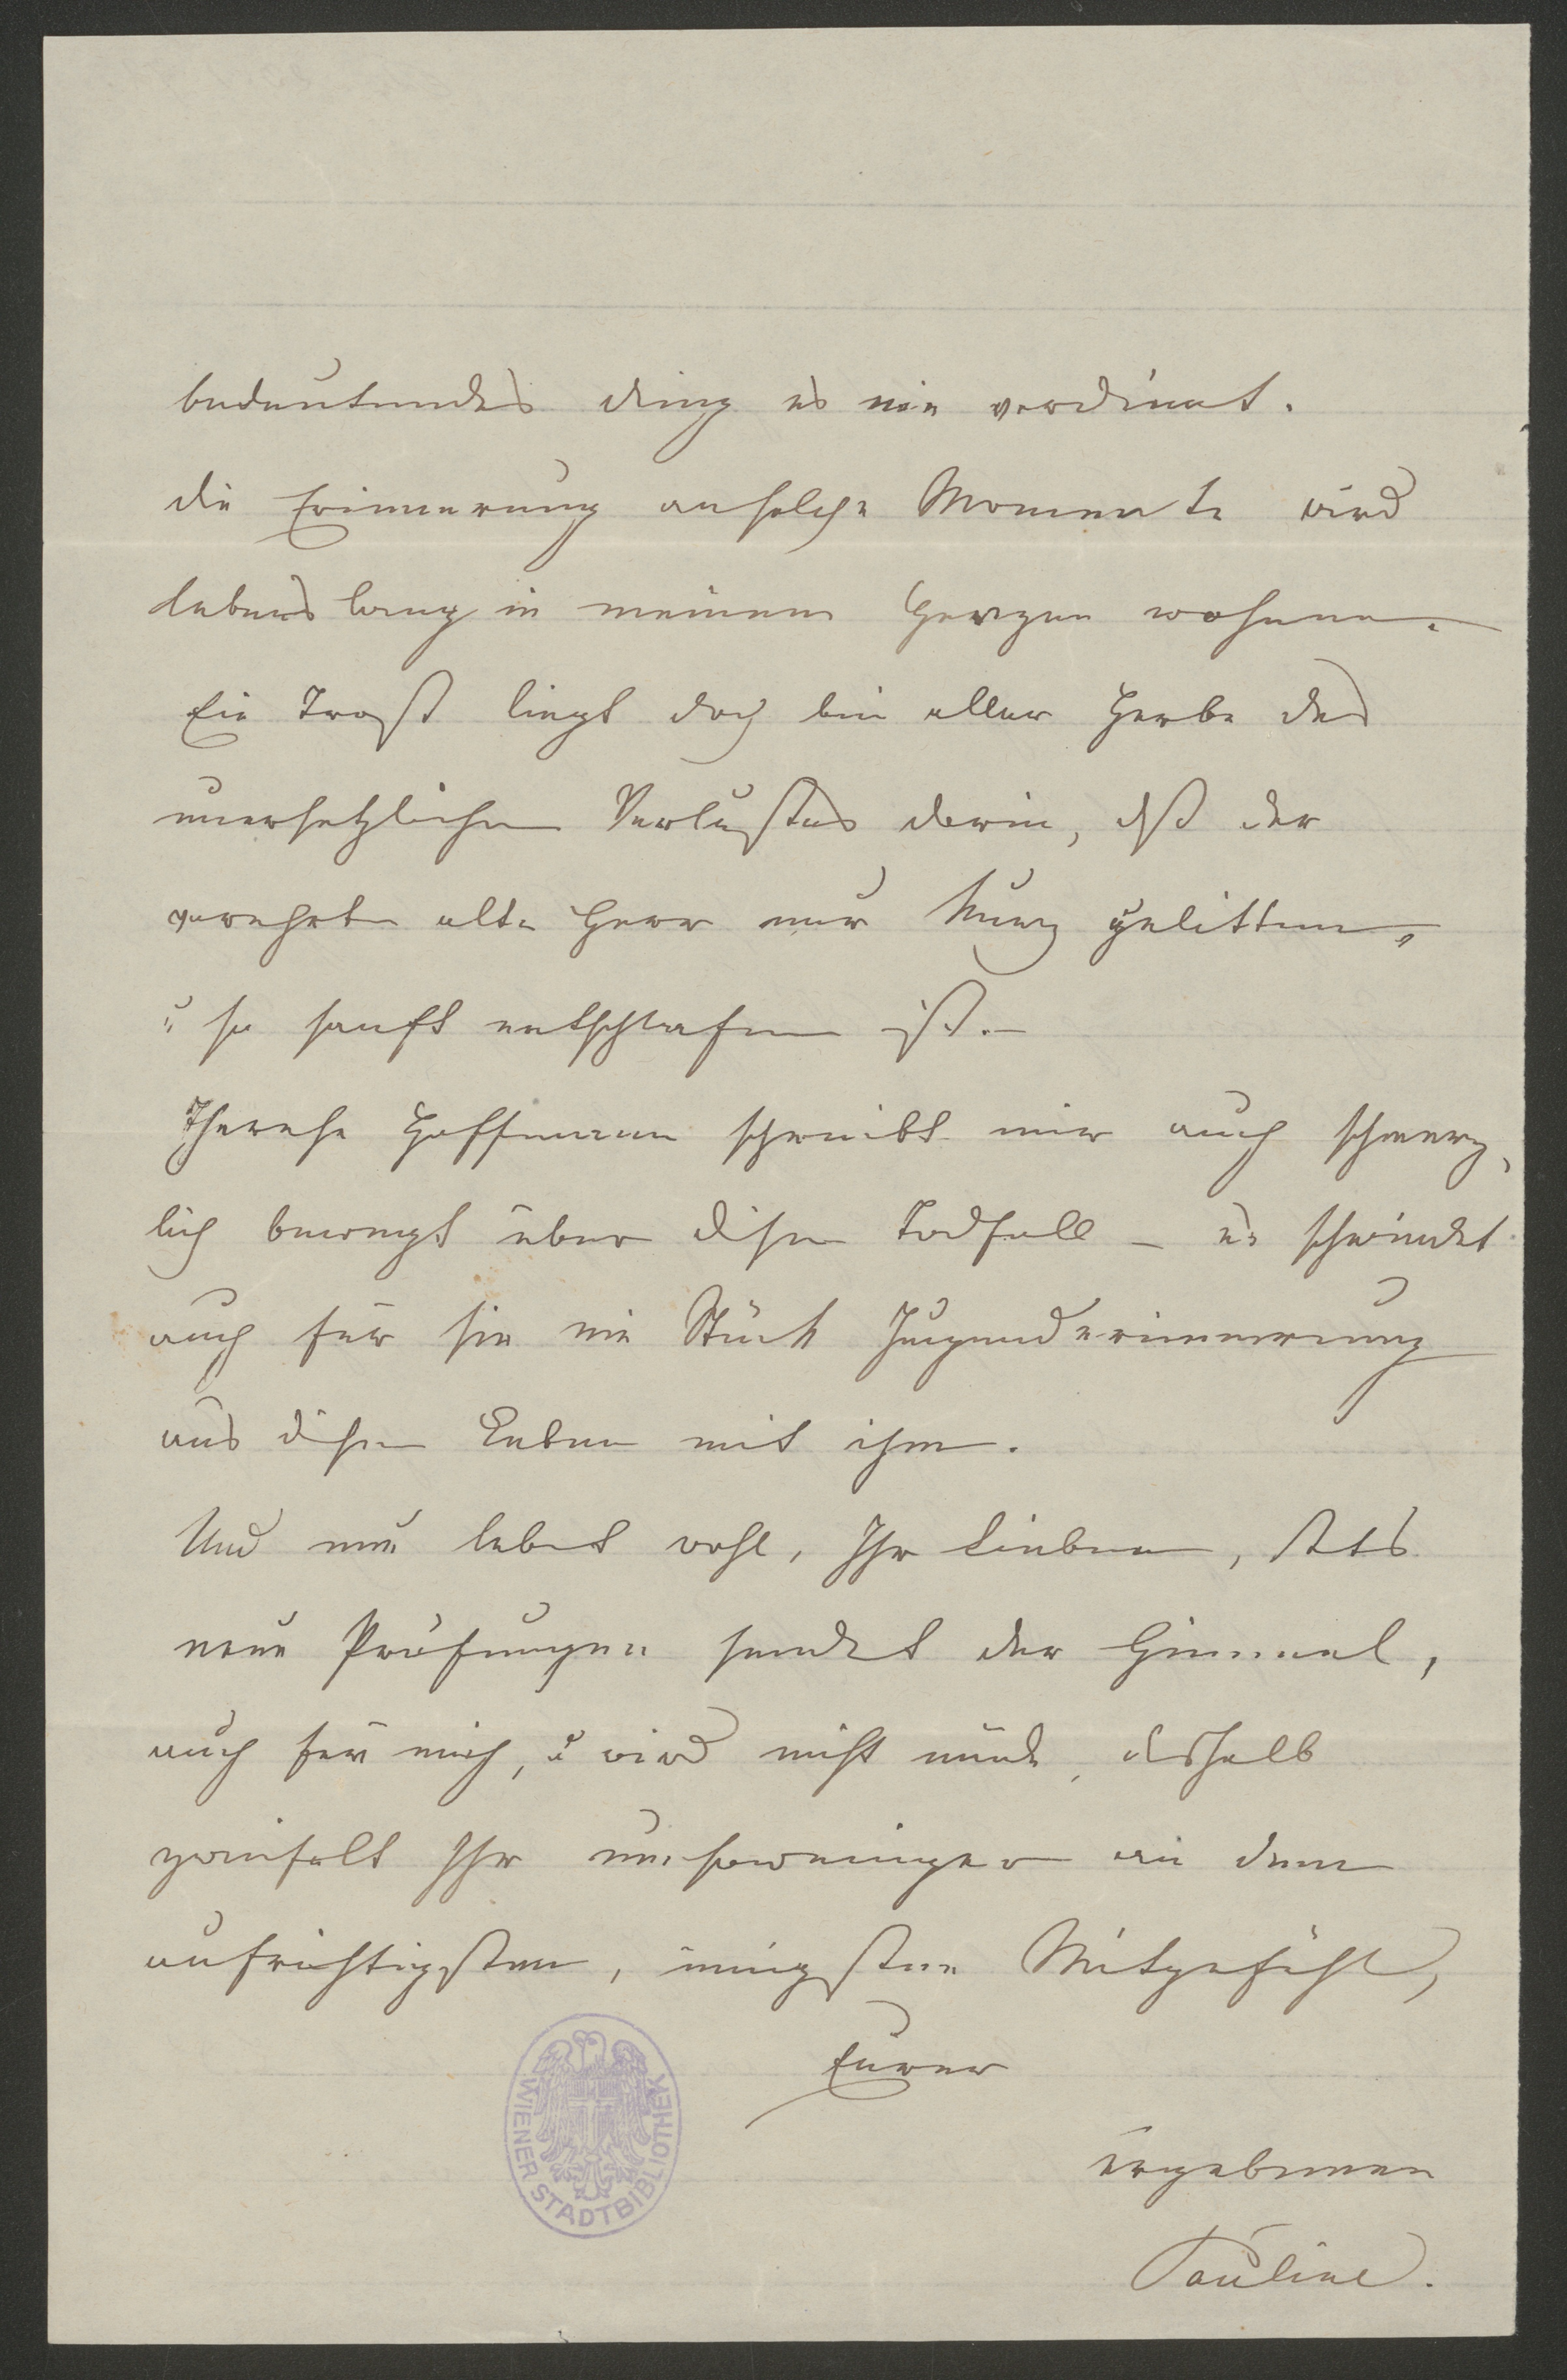 bedeutendes Ding es nie verdient.
die Erinnerung an solche Momente wird
lebenslang in meinem Herzen wohnen.
Ein Trost liegt doch bei aller Herbe des
unersetzlichen Verlustes darin, dß der
verehrte alte Herr nur kurz gelitten,
u so sanft entschlafen ist. –
Therese Hoffmann schreibt mir auch schmerz-
lich bewegt über disen Todfall – es schwindet
auch für sie ein Stück Jugenderinnerung
aus disem Leben mit ihm.
Und nun lebet wohl, Ihr Lieben, stets
neue Prüfungen sendet der Himmel,
auch für mich, u wird nicht müde, deßhalb
zweifelt Ihr umsoweniger an dem
aufrichtigsten, innigsten Mitgefühl,
Eurer
ergebenen
Pauline.
WIENER STADTBIBLIOTHEK